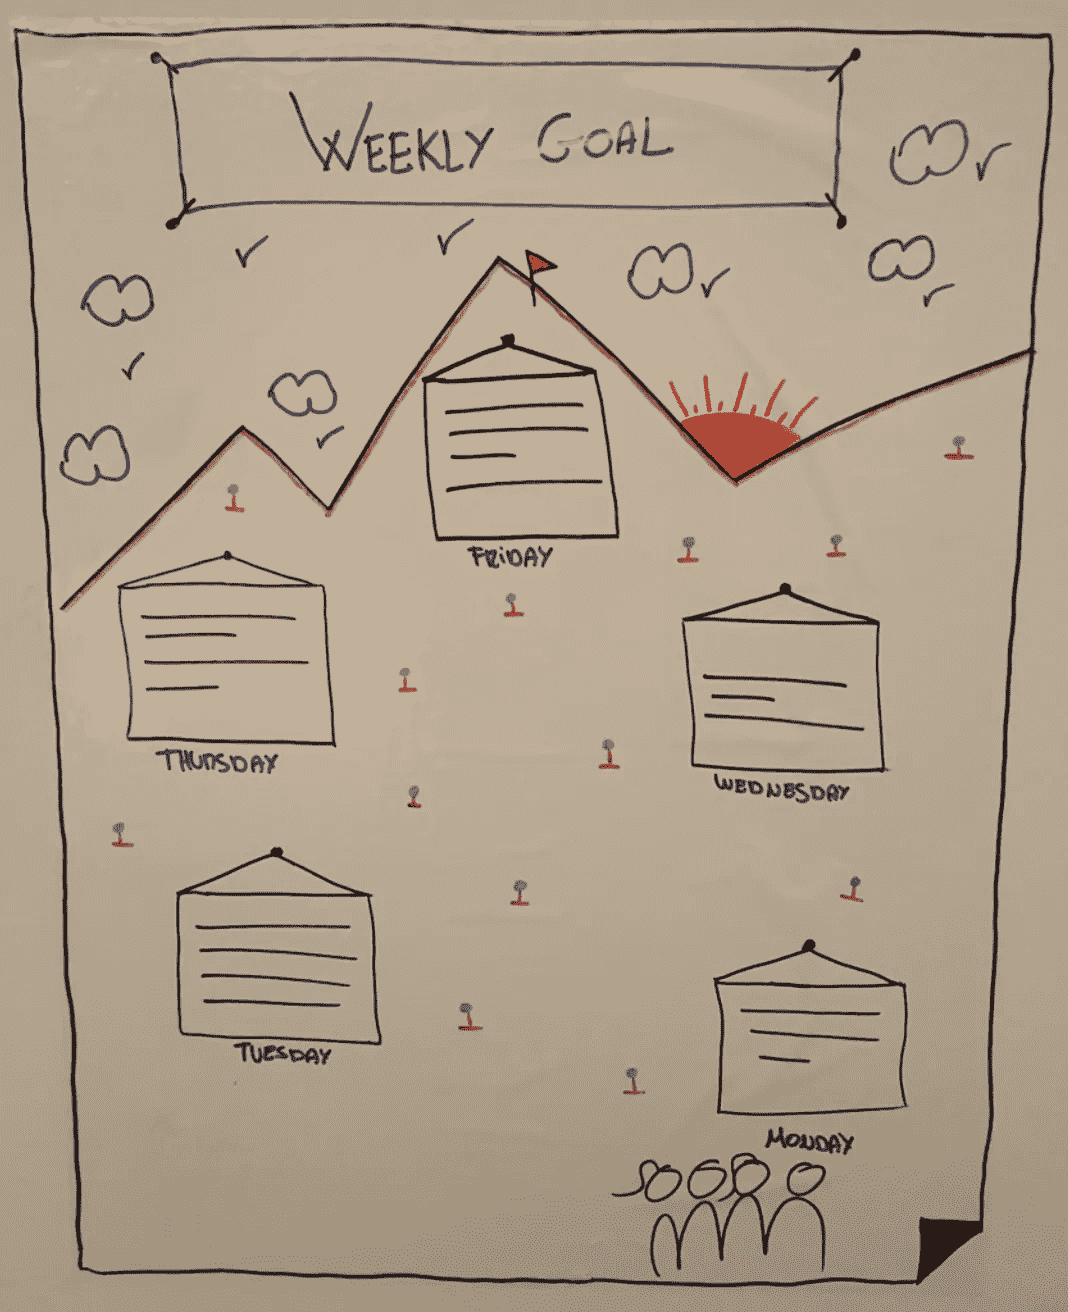 WEEKLY GOAL
FRIDAY
THURSDAY
WEDNESDAY
TUESDAY
MONDAY